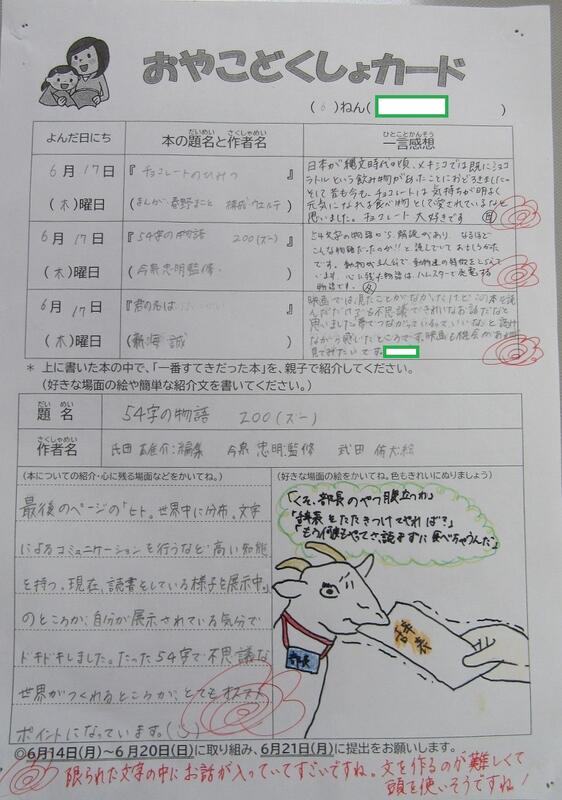 おやこどくしょカード
(6)ねん( )
よんだ日にち
本の題名と作者名
だいめい さくしゃめい
一言感想
ひとことかんそう
6月17日
(木)曜日
『チョコレートのひみつ』
(まんが 春野まこと 構成 ウェルテ)
日本が縄文時代の頃、メキシコでは既にショコ
ラトルという飲み物があったことにおどろきました。
そして昔も今も、チョコレートは気持ちが明るく
元気になれる食べ物として愛されているなと
思いました。チョコレート大好きです
6月17日
(木)曜日
『54字の物語 200(ズー)』
(今泉忠明監修)
54文字の物語から解説があり、なるほど
こんな物語だったのか!!と読んでいておもしろかった
です。動物がまん分で動物達の特徴をとらんて
います。心に残った物語は、ハムスターで発電する
物語です。
6月17日
(木)曜日
『君の名は』
(新海 誠)
映画では見たことがなかったけど、この本を読
んだだけでも不思議できれいなお話だなと
思いました。夢でつながっているって、いいな、と読み
ながら感じたところです。映画も機会があれば
見てみたいです。
* 上に書いた本の中で、「一番すてきだった本」を、親子で紹介してください。
(好きな場面の絵や簡単な紹介文を書いてください。)
だい めい
題 名
54字の物語 200(ズー)
さくしゃめい
作者名
氏田 雄介:編集 今泉 忠明監修 武田 侑大絵
(本についての紹介・心に残る場面などをかいてね。)
最後のページの「ヒト。世界中に分布。文字
によるコミュニケーションを行うなど高い知能
を持つ。現在、読書をしている様子を展示中。」
のところが、自分が展示されている気分で
ドキドキしました。たった54字で不思議な
世界がつくれるところが、とてもオススメ
ポイントになっています。
(好きな場面の絵をかいてね。色もきれいにぬりましょう)
「くそ、部長のやつ腹立つわ」
「辞表をたたきつけてやれば?」
「もう何度もやってさ、読まずに食べちゃうんだ」
部長
辞表
◎6月14日(月)~6月20日(日)に取り組み、6月21日(月)に提出をお願いします。
限られた文字の中にお話が入っていてすごいですね。文を作るのが難しくて
頭を使いそうですね!